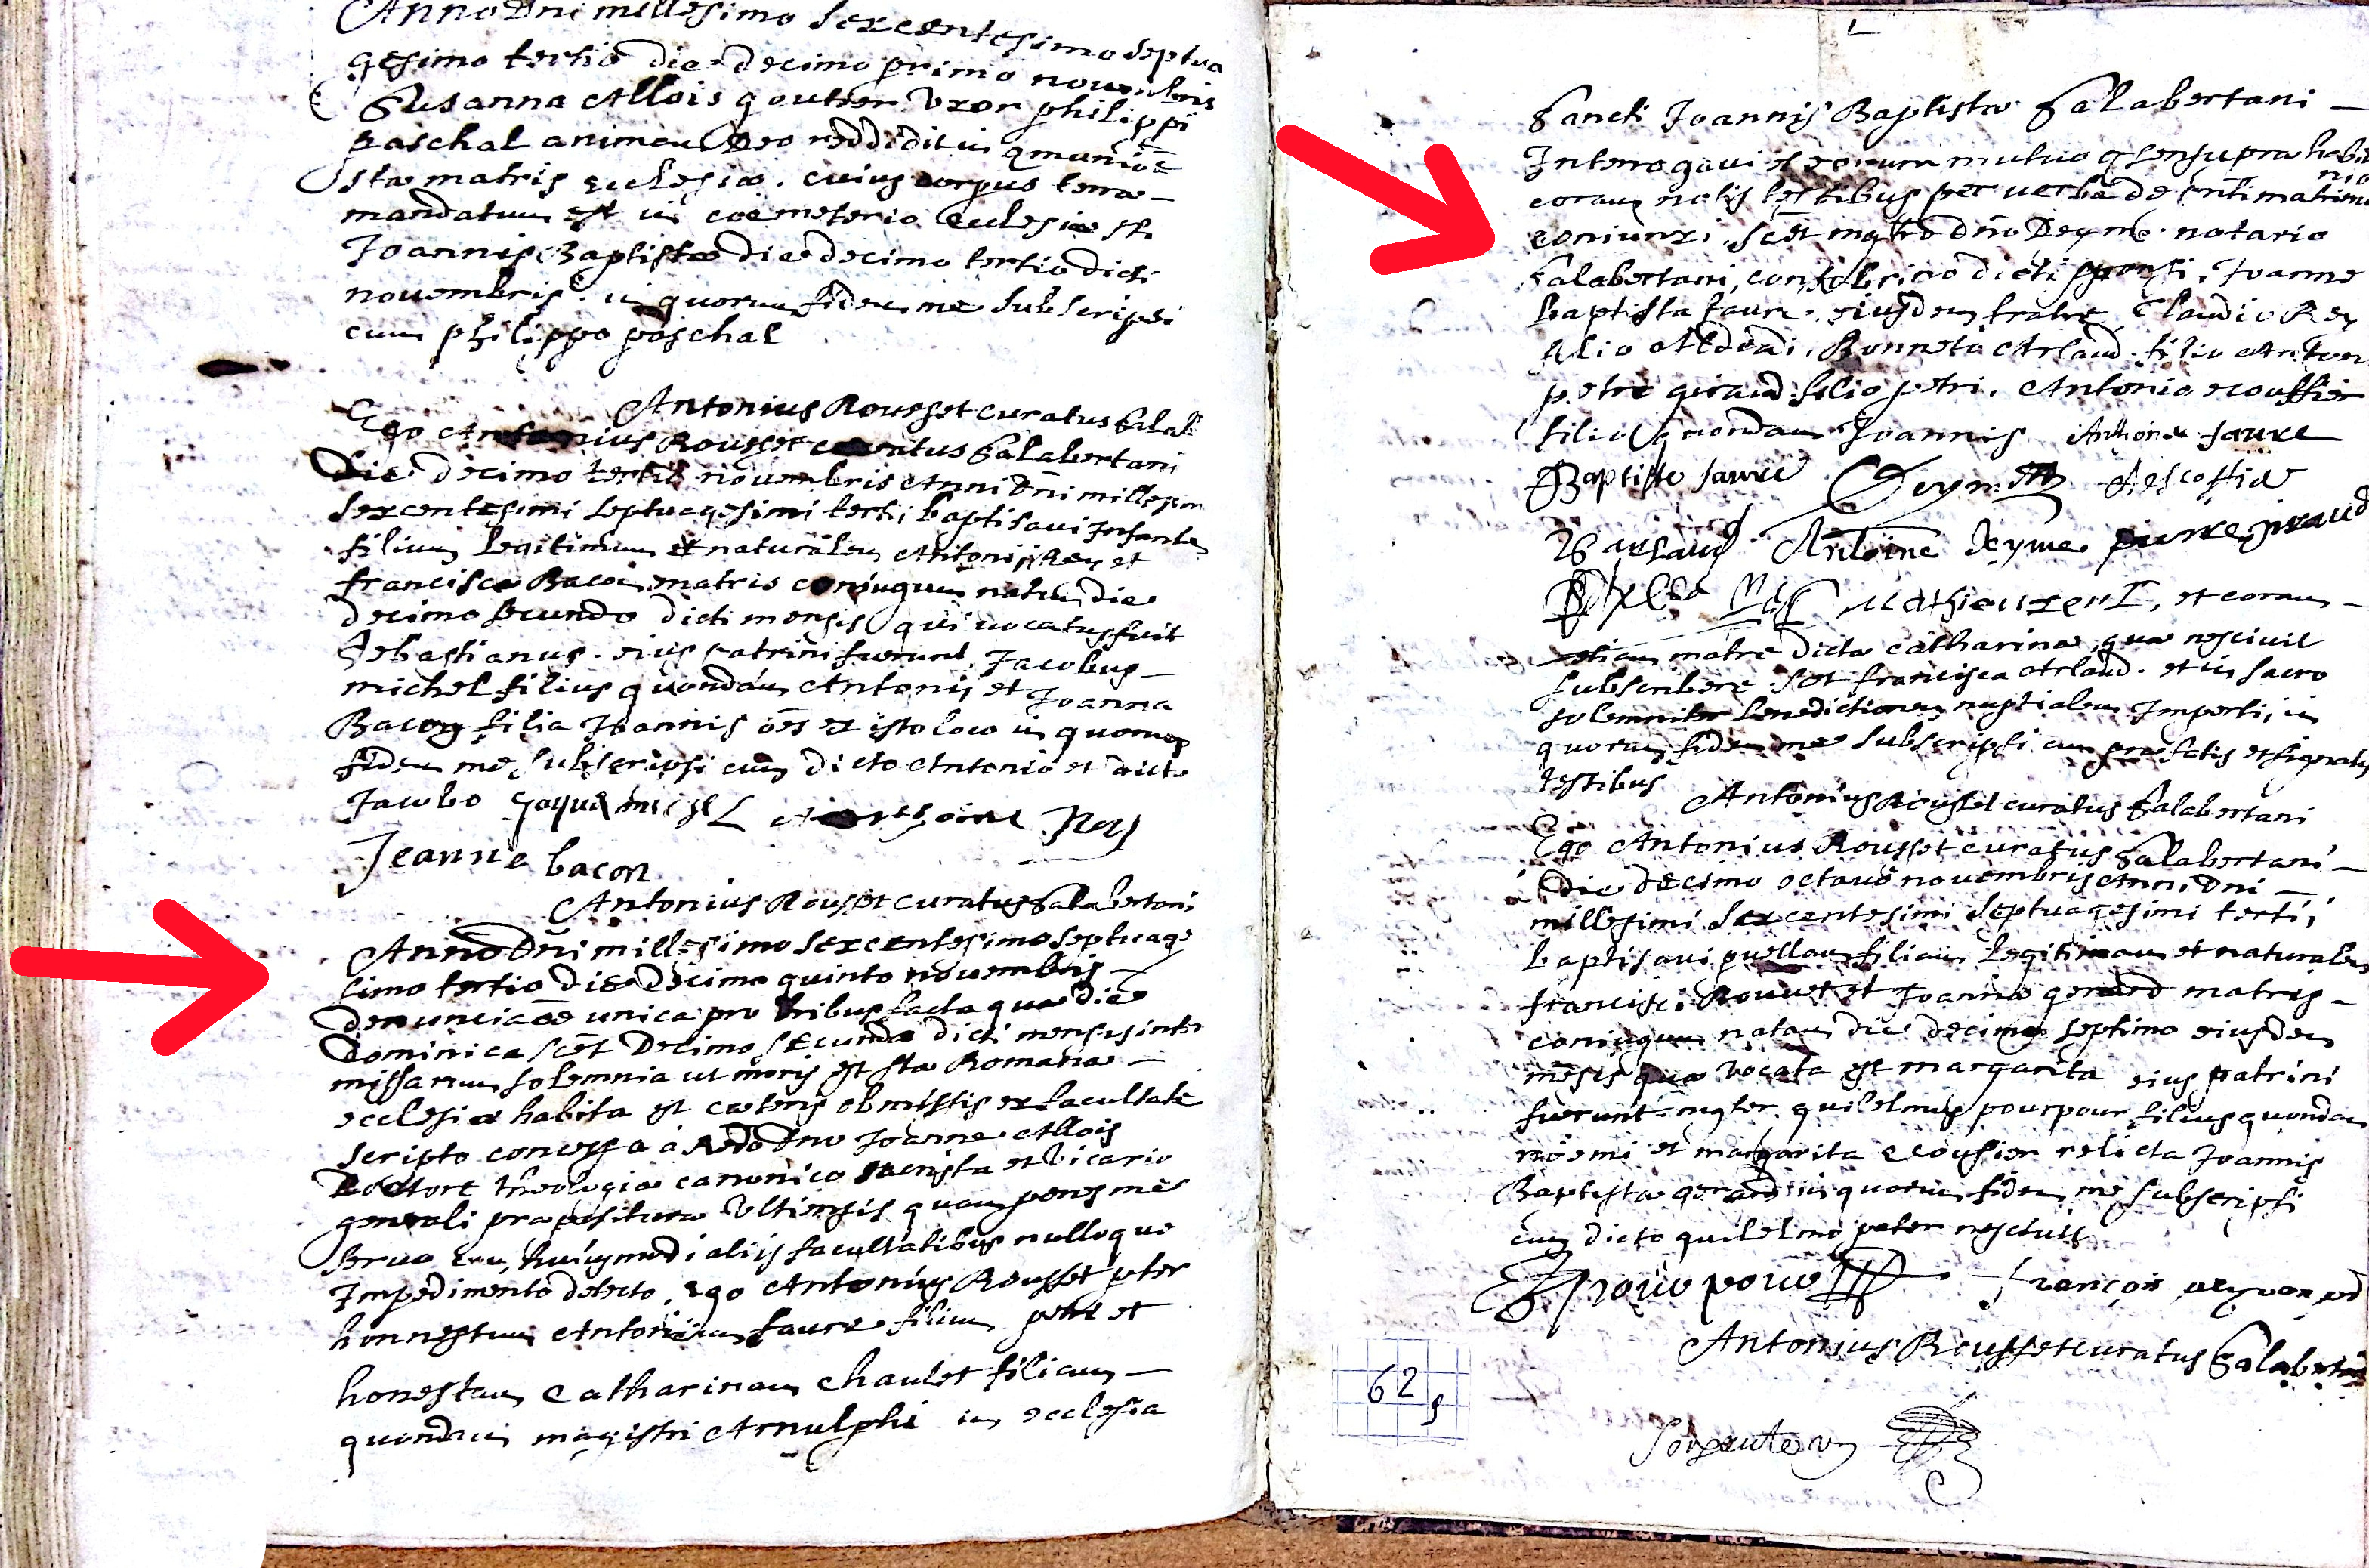 Anno Dni millesimo sexcentesimo septua
gesimo tertio die decimo primo novembris
Susanna Allois goutier uxor philippi
paschal animam Deo reddidit in
stæ matris ecclesiæ. cuius corpus terræ
mandatum est in coemeterio ecclesiæ sti
Joannis Baptistæ die decimo tertio dicti
novembris. in quorum fidem me subscripsi
cum philippo paschal
Antonius Rousset curatus Salab
Ego Antonius Rousset curatus Salabertani
Die decimo tertio novembris Anni Dni millesim
sexcentesimi septuagesimi tertii baptisavi Infantem
filium legitimum et naturalem Antonii Rey et
franciscæ Bacon matris coniugum natum die
decimo secundo dicti mensis qui vocatus fuit
Sebastianus. eius patrini fuerunt Jacobus
michel filius quondam Antonii et Joanna
Bacon filia Joannis oes ex isto loco in quorum
fidem me subscripsi cum dicto Antonio et dicto
Jacobo Jaque michel Rey
Jeanne bacon
Antonius Rousset curatus Salabertani
Anno Dni millesimo sexcentesimo septuage
simo tertio die decimo quinto novembris
denunciaoe unica pro tribus facta qua die
Dominica scet Decimo secunda dicti mensis inter
missarum solemnia ut moris est stæ Romanæ
ecclesiæ habita est cæteris obmissis ex facultate
scripto concessa a Rdo Dno Joanne Allois
Doctore theologiæ canonico sacrista et vicario
generali præpositura Ultiensis quam penes me
servo cum huiusmodi aliis facultatibus nulloque
Impedimento detecto, ego Antonius Rousset pter
honnestum Antonium faure filium petri et
honestam Catharinam Chaulet filiam
quondam magistri Arnulphi in ecclesia
Sancti Joannis Baptistæ Salabertani
Interrogavi et eorum mutuo qsensu præ habi
nio
coram notis testibus per verba de pntimatrimo
coniunxi, scet mgtro dno Deyme notario
Salabertani, consobrino dicti sponsi, Joanne
baptista faure eiusdem fratre, Claudio Rey
filio Arland filio Anton
petro giraud filio petri, Antonio ecoffier
filio quondam Joannis Anthoine faure
Baptiste faure Deyme Aescoffier
B arlaud Antoine deyme pierre giraud
et coram
etiam matre dictæ catharinæ quæ nescivit
subscribere scet francisca Arlaud. et in sacro
solemniter benedictionem nuptialem Imperti, in
quorum fidem me subscripsi cum præfatis et signatis
testibus
Antonius Rousset curatus Salabertani
Ego Antonius Rousset curatus Salabertani
Die decimo octavo novembris Anni Dni
millesimi sexcentesimi septuagesimi tertii
baptisavi puellam filiam legitimam et naturalem
francisci Rouvet et Joannæ gerard matris
coniugum natam die decimo septimo eiusdem
mesis quæ vocata est margarita eius patrini
fuerunt mgter guilelmus pourpour filius quondam
noemi et margarita ecoffier relicta Joannis
Baptistæ gerard in quorum fidem me subscripsi
cum dicto guilelmo pater nescivit
françois
Antonius Rousset curatus Salabertani
62